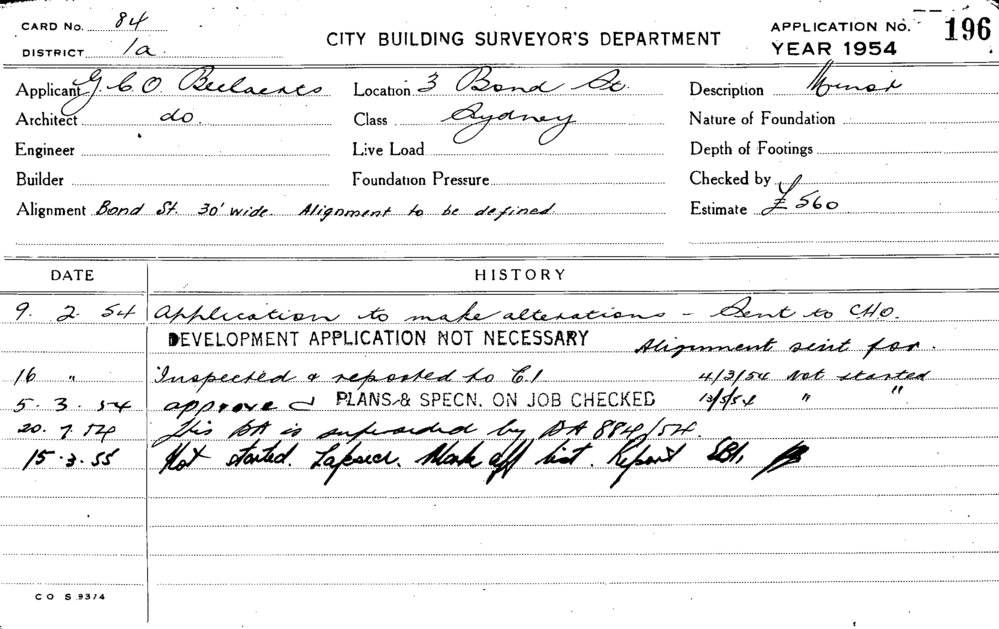 CARD No. 84
DISTRICT 1a.
CITY BUILDING SURVEYOR'S DEPARTMENT
APPLICATION No. 196
YEAR 1954
Applicant G.C.O.
Location 3 Bond St.
Description Minor
Architect do.
Class Sydney
Nature of Foundation
Engineer
Live Load
Depth of Footings
Builder
Foundation Pressure
Checked by
Alignment Bond St. 30' wide. Alignment to be defined
Estimate £560
DATE HISTORY
9. 2. 54 Application to make alterations – Sent to CHO.
DEVELOPMENT APPLICATION NOT NECESSARY Alignment sent for.
16 " Inspected & reported to C.I 4/3/54 Not started
5. 3. 54 approved PLANS & SPECN. ON JOB CHECKED 13/5/54 " "
20. 7. 54 This BA is superseded by BA 884/54.
15. 3. 55 Not started. Lapsed. Mark off list. Report SBI.
C O S 9374